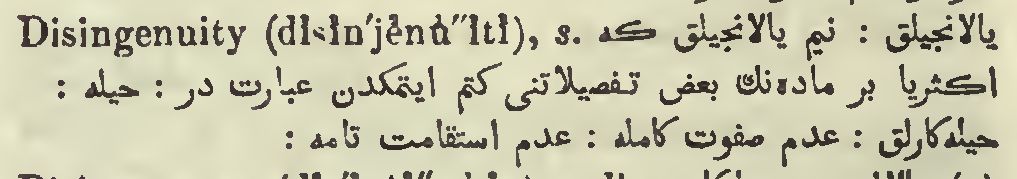 Disingenuity (dĭsĭn'jĕnū"ĭtĭ), s. یالانجیلق : نیم یالانجیلق که
اكثریا بر ماده‌نك بعض تفصیلاتنی كتم ایتمكدن عبارت در : حیله :
حیله‌كارلق : عدم صفوت كامله : عدم استقامت تامه :